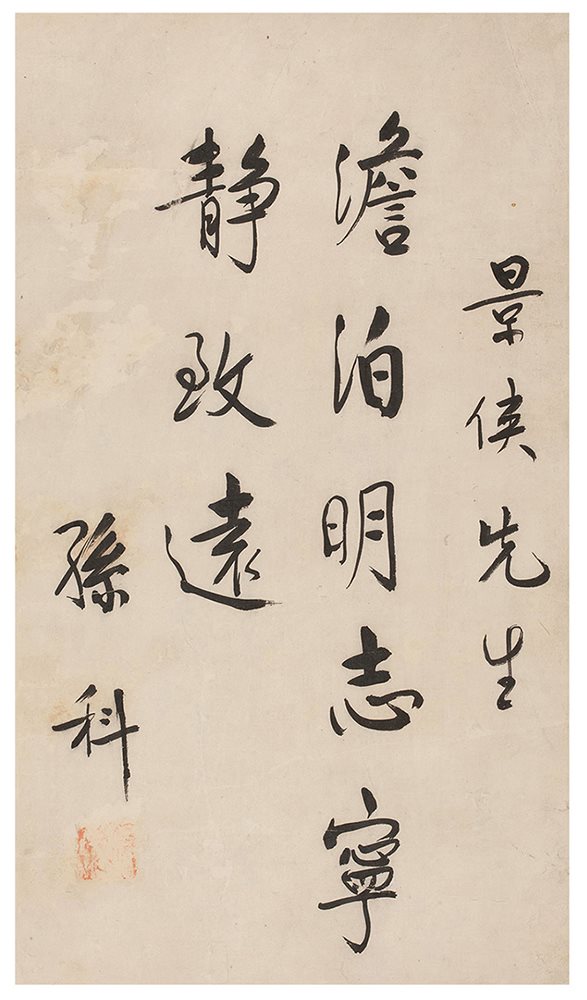 景侠先生
澹泊明志寧
静致遠
孫科